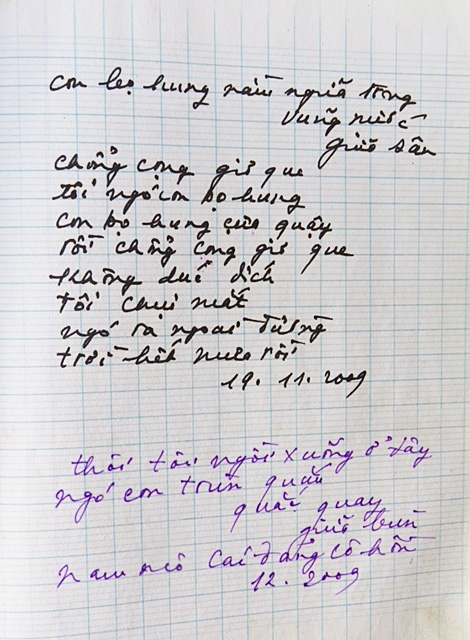 con bọ hung nằm ngửa trong
vũng nước
giữa sân
chổng cọng giơ que
tôi ngó con bọ hung
con bọ hung cựa quậy
rồi chổng cọng giơ que
không dục dịch
tôi chùi mắt
ngó ra ngoài đường
trời hết mưa rồi
19. 11. 2009
thôi tôi ngồi xuống ở đây
ngó con trùn quằn
quắc quay
giữa bùn
nam mô cái đảng cô hồn
12. 2009